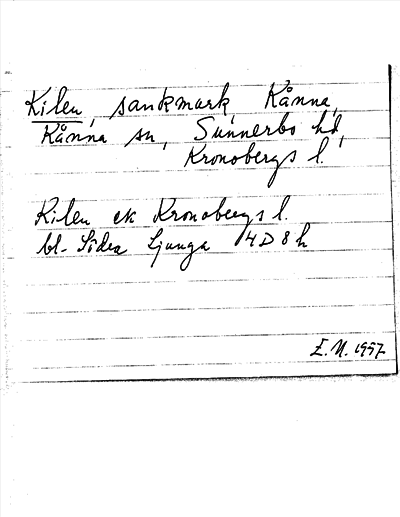 Kilen, sankmark, Kånna,
Kånna sn, Sunnerbo hd,
Kronobergs l.
Kilen ek Kronobergs l.
bl. Södra Ljunga 4D 8h
E.N. 1997